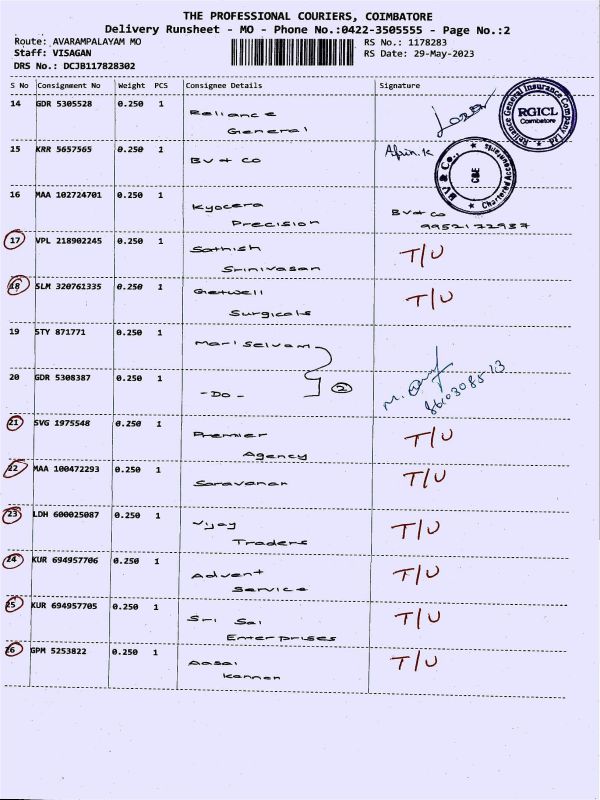 THE PROFESSIONAL COURIERS, COIMBATORE
Delivery Runsheet - MO - Phone No.:0422-3505555 - Page No.:2
Route: AVARAMPALAYAM MO RS No.: 1178283
Staff: VISAGAN RS Date: 29-May-2023
DRS No.: DCJB117828302
S No Consignment No Weight PCS Consignee Details Signature
14 GDR 5305528 0.250 1 Reliance
General
Reliance General Insurance Company
RGICL
Coimbatore
15 KRR 5657565 0.250 1 BV & CO Afrin.K
BV & Co.,
CBE
Chartered Accountants
16 MAA 102724701 0.250 1 Kyocera
Precision
BV & Co
9952172937
17 VPL 218902245 0.250 1 Sathish T/U
Srinivasan
18 SLM 320761335 0.250 1 Getwell T/U
Surgicals
19 STY 871771 0.250 1 Mariselvam
20 GDR 5308387 0.250 1 -Do- 2
8610308513
21 SVG 1975548 0.250 1 Premier T/U
Agency
22 MAA 100472293 0.250 1 Saravanan T/U
23 LDH 600025087 0.250 1 Vijay T/U
Traders
24 KUR 694957706 0.250 1 Advent T/U
Service
25 KUR 694957705 0.250 1 Sri Sai T/U
Enterprises
26 GPM 5253822 0.250 1 Aasai T/U
Kannan